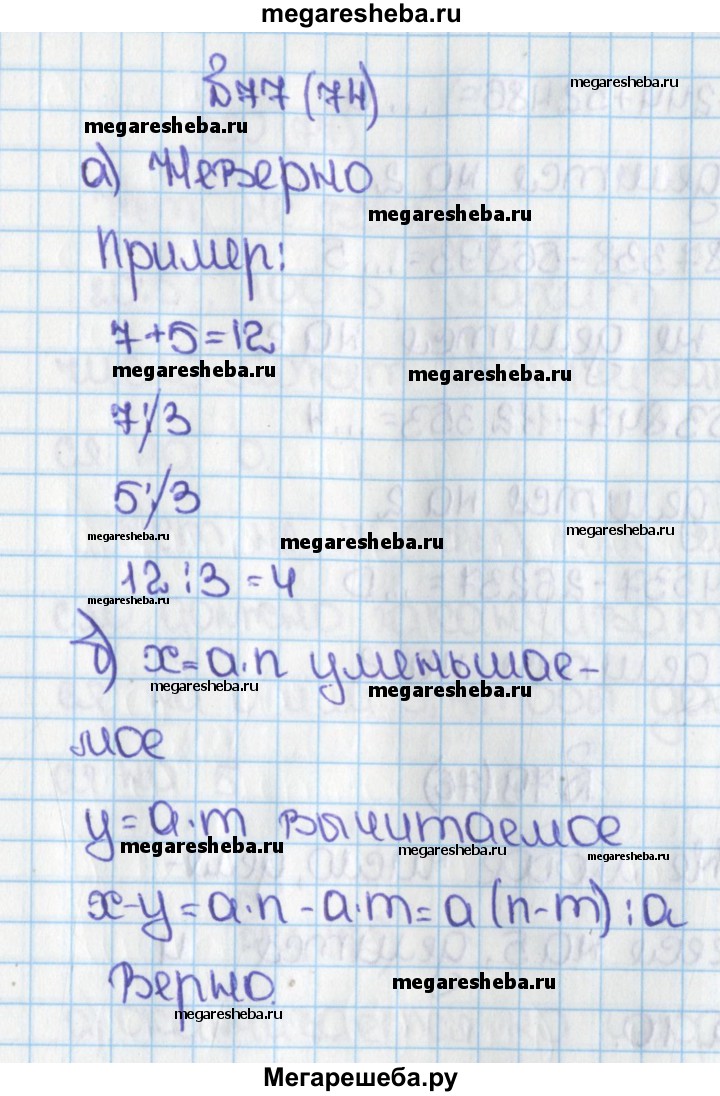 megaresheba.ru
В 77 (74)
megaresheba.ru
megaresheba.ru
а) Неверно
megaresheba.ru
Пример:
7+5=12
megaresheba.ru
megaresheba.ru
7⋮̸3
5⋮̸3
megaresheba.ru
megaresheba.ru
megaresheba.ru
12⋮3=4
megaresheba.ru
б) x=a·n уменьшае-
megaresheba.ru
megaresheba.ru
мое
y=a·m вычитаемое
megaresheba.ru
megaresheba.ru
megaresheba.ru
x-y=a·n-a·m=a(n-m)⋮a
Верно.
megaresheba.ru
megaresheba.ru
Мегарешеба.ру